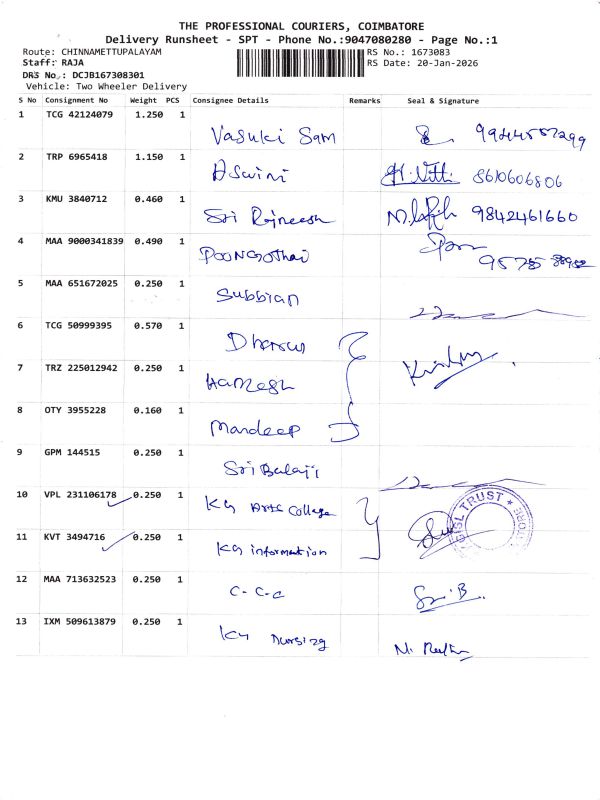 THE PROFESSIONAL COURIERS, COIMBATORE
Delivery Runsheet - SPT - Phone No.:9047080280 - Page No.:1
Route: CHINNAMETTUPALAYAM RS No.: 1673083
Staff: RAJA RS Date: 20-Jan-2026
DRS No.: DCJB167308301
Vehicle: Two Wheeler Delivery
S No Consignment No Weight PCS Consignee Details Remarks Seal & Signature
1 TCG 42124079 1.250 1 Vasuki Sam
2 TRP 6965418 1.150 1 Aswini 8610606806
3 KMU 3840712 0.460 1 Sri Rajneesh 9842461660
4 MAA 9000341839 0.490 1 Poongothai
5 MAA 651672025 0.250 1 Subbian
6 TCG 50999395 0.570 1
7 TRZ 225012942 0.250 1 Hamesh
8 OTY 3955228 0.160 1 Mandeep
9 GPM 144515 0.250 1 Sri Balaji
10 VPL 231106178 0.250 1 KG Arts College
TRUST
11 KVT 3494716 0.250 1 KG information
12 MAA 713632523 0.250 1 C-C-C
13 IXM 509613879 0.250 1 KG Nursing